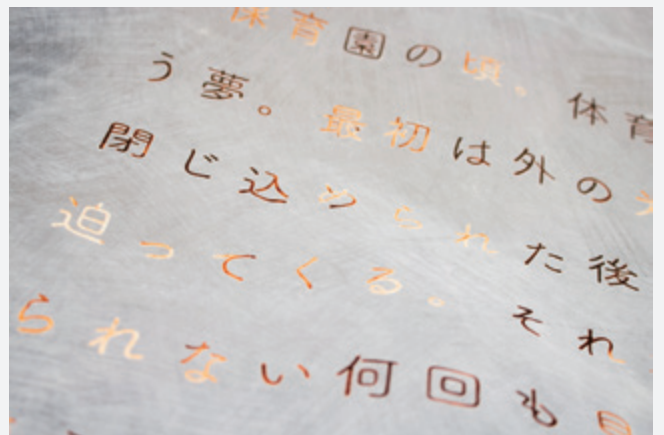 保育園の頃。体育
う夢。最初は外の
閉じ込められた後
迫ってくる。それ
られない何回も見